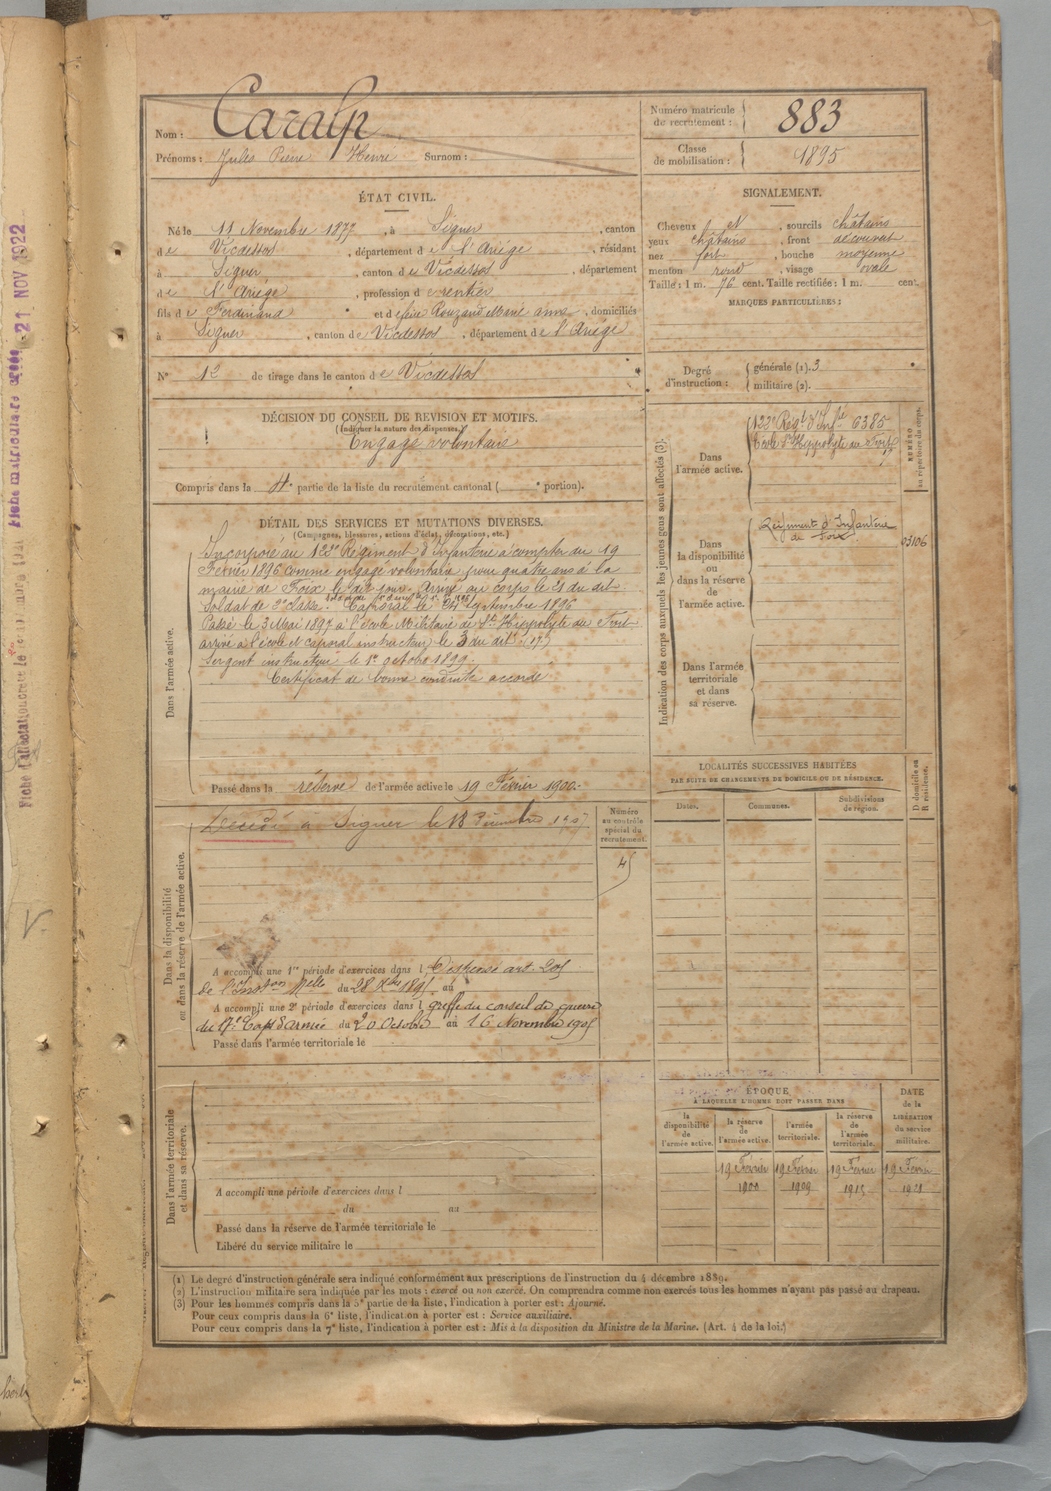 Nom : Caralp
Prénoms : Jules Pierre Henri Surnom :
Numéro matricule de recrutement : 883
Classe de mobilisation : 1895
ÉTAT CIVIL.
Né le 11 Novembre 1877, à Siguer, canton
de Vicdessos, département de l'Ariège, résidant
à Siguer, canton de Vicdessos, département
de l'Ariège, profession de rentier
fils de Ferdinand et de feue Rouzaud Marie Anne, domiciliés
à Siguer, canton de Vicdessos, département de l'Ariège
N° 12 de tirage dans le canton de Vicdessos
SIGNALEMENT.
Cheveux et, sourcils châtains
yeux châtains, front découvert
nez fort, bouche moyenne
menton rond, visage ovale
Taille : 1 m. 76 cent. Taille rectifiée : 1 m. cent.
MARQUES PARTICULIÈRES :
Degré d'instruction : générale (1). 3
militaire (2).
DÉCISION DU CONSEIL DE REVISION ET MOTIFS.
(Indiquer la nature des dispenses.)
Engagé volontaire
Compris dans la 4e partie de la liste du recrutement cantonal ( e portion).
DÉTAIL DES SERVICES ET MUTATIONS DIVERSES.
(Campagnes, blessures, actions d'éclat, décorations, etc.)
Dans l'armée active.
Incorporé au 122e Régiment d'Infanterie à compter du 19
Février 1896 comme engagé volontaire pour quatre ans à la
mairie de Foix le dit jour. Arrivé au corps le 21 du dit.
Soldat de 2e classe. Caporal le 24 septembre 1896
Passé le 3 Mai 1897 à l'école Militaire de St Hippolyte du Fort
arrivé à l'école et caporal instructeur le 3 du dit.
Sergent instructeur le 1er octobre 1899.
Certificat de bonne conduite accordé
Passé dans la réserve de l'armée active le 19 Février 1900.
Indication des corps auxquels les jeunes gens sont affectés (3).
Dans l'armée active.
122e Régt d'Infie 6385
Ecole St Hippolyte du Fort
17
NUMÉRO au répertoire du corps.
Dans la disponibilité ou dans la réserve de l'armée active.
Régiment d'Infanterie
de Foix
03106
Dans l'armée territoriale et dans sa réserve.
LOCALITÉS SUCCESSIVES HABITÉES
PAR SUITE DE CHANGEMENTS DE DOMICILE OU DE RÉSIDENCE.
Dates. Communes. Subdivisions de région. D domicile ou R résidence.
Dans la disponibilité ou dans la réserve de l'armée active.
Décédé à Siguer le 13 Décembre
Numéro au contrôle spécial du recrutement.
A accompli une 1re période d'exercices dans l Dispensé art. 205
de l'Inston Melle du 28 Xbre 1895 au
A accompli une 2e période d'exercices dans l greffe du conseil de guerre
du 17e Corps d'armée du 20 Octobre au 16 Novembre 1905
Passé dans l'armée territoriale le
Dans l'armée territoriale et dans sa réserve.
A accompli une période d'exercices dans l
du au
Passé dans la réserve de l'armée territoriale le
Libéré du service militaire le
ÉPOQUE
A LAQUELLE L'HOMME DOIT PASSER DANS
la disponibilité de l'armée active.
la réserve de l'armée active.
l'armée territoriale.
la réserve de l'armée territoriale.
DATE de la LIBÉRATION du service militaire.
19 Février 19 Février 19 Février 19 Février
1900 1909 1915 1921
(1) Le degré d'instruction générale sera indiqué conformément aux prescriptions de l'instruction du 4 décembre 1889.
(2) L'instruction militaire sera indiquée par les mots : exercé ou non exercé. On comprendra comme non exercés tous les hommes n'ayant pas passé au drapeau.
(3) Pour les hommes compris dans la 5e partie de la liste, l'indication à porter est : Ajourné.
Pour ceux compris dans la 6e liste, l'indication à porter est : Service auxiliaire.
Pour ceux compris dans la 7e liste, l'indication à porter est : Mis à la disposition du Ministre de la Marine. (Art. 4 de la loi.)
Fiche matriculaire créée 21 NOV 1922